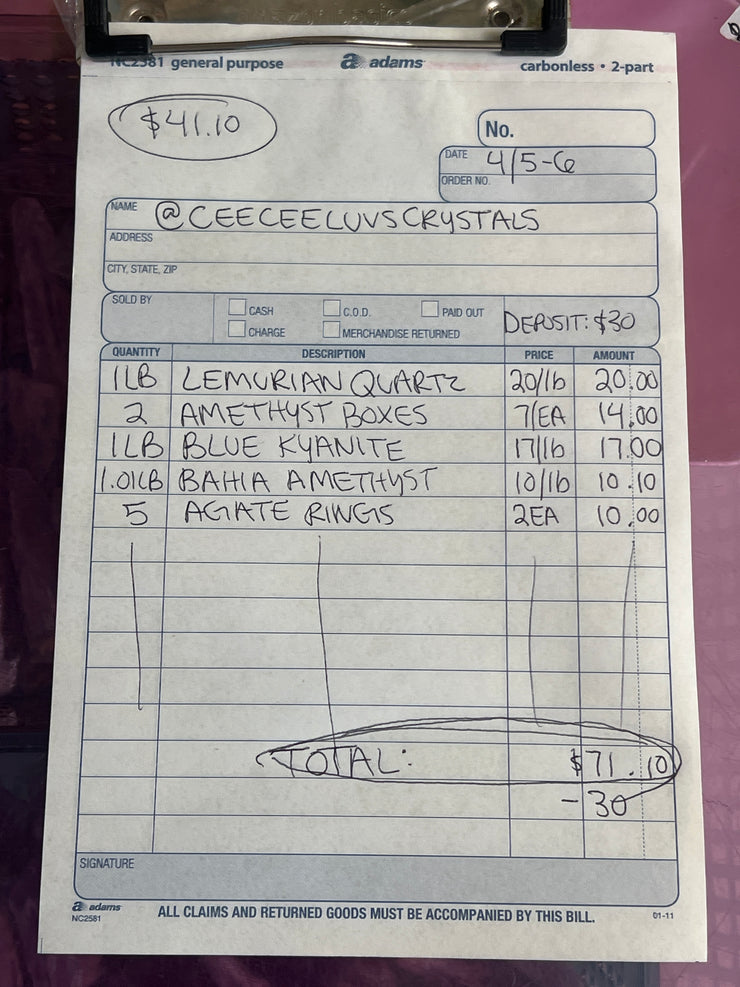 NC2581 general purpose adams carbonless • 2-part
$41.10
No.
DATE 4/5-6
ORDER NO.
NAME @CEECEELUVSCRYSTALS
ADDRESS
CITY, STATE, ZIP
SOLD BY CASH C.O.D. PAID OUT DEPOSIT: $30
CHARGE MERCHANDISE RETURNED
QUANTITY DESCRIPTION PRICE AMOUNT
1LB LEMURIAN QUARTZ 20/lb 20.00
2 AMETHYST BOXES 7/EA 14.00
1LB BLUE KYANITE 17/lb 17.00
1.01LB BAHIA AMETHYST 10/lb 10.10
5 AGATE RINGS 2EA 10.00
TOTAL: $71.10
-30
SIGNATURE
adams
NC2581 ALL CLAIMS AND RETURNED GOODS MUST BE ACCOMPANIED BY THIS BILL. 01-11